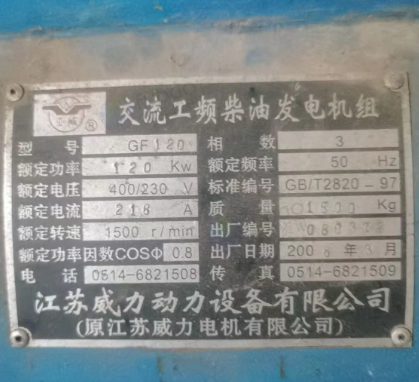 亚威 ®
交流工频柴油发电机组
型 号 GF120 相 数 3
额定功率 120 Kw 额定频率 50 Hz
额定电压 400/230 V 标准编号 GB/T2820-97
额定电流 216 A 质 量 Kg
额定转速 1500 r/min 出厂编号
额定功率因数COSΦ 0.8 出厂日期 200 年 月
电 话 0514-6821508 传 真 0514-6821509
江苏威力动力设备有限公司
(原江苏威力电机有限公司)